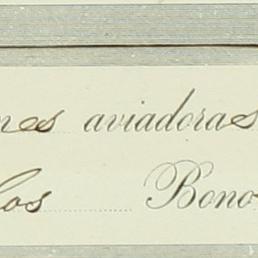 nes aviadoras
los Bono